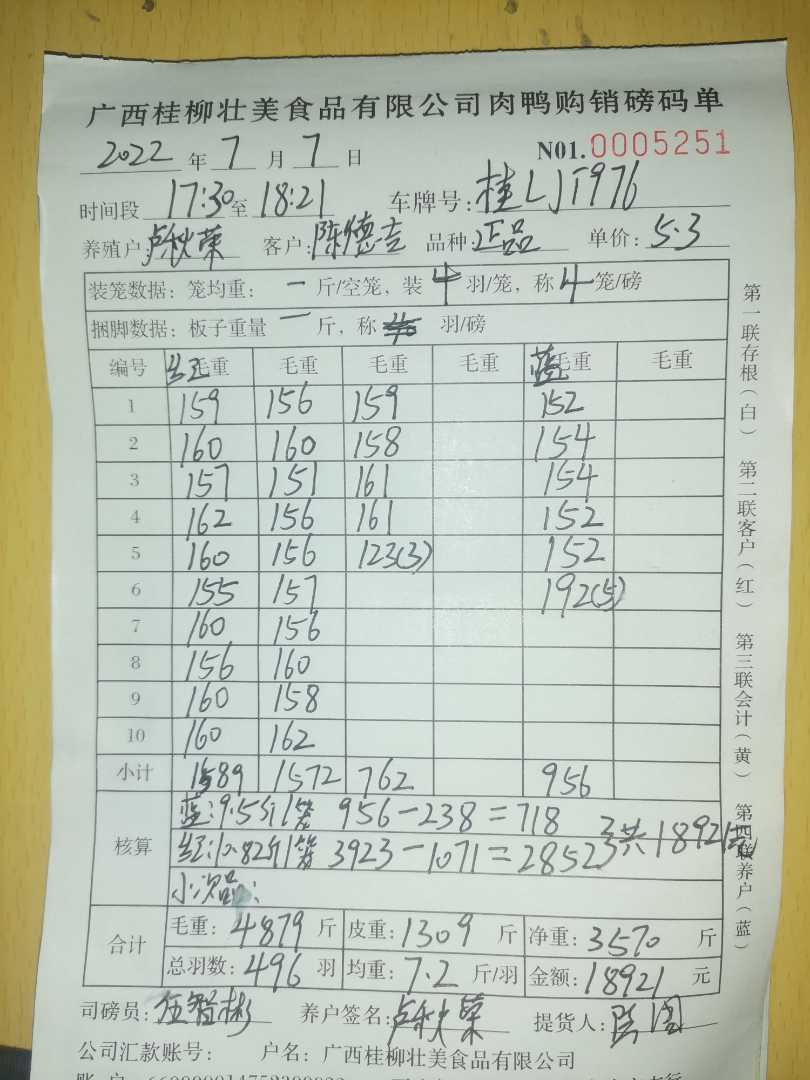 广西桂柳壮美食品有限公司肉鸭购销磅码单
2022 年 7 月 7 日 N01.0005251
时间段 17:30 至 18:21 车牌号: 桂LJT976
养殖户: 卢秋荣 客户: 陈德吉 品种: 正品 单价: 5.3
装笼数据: 笼均重: 一 斤/空笼, 装 4 羽/笼, 称 4 笼/磅
捆脚数据: 板子重量 一 斤, 称 羽/磅
编号 红毛重 毛重 毛重 毛重 蓝毛重 毛重
1 159 156 159 152
2 160 160 158 154
3 157 151 161 154
4 162 156 161 152
5 160 156 123(3) 152
6 155 157 192(5)
7 160 156
8 156 160
9 160 158
10 160 162
小计 1589 1572 762 956
核算
蓝: 9.5斤/笼 956-238=718
红: 10.82斤/笼 3923-1071=2852 共18921元
小次品:
合计
毛重: 4879 斤 皮重: 1309 斤 净重: 3570 斤
总羽数: 496 羽 均重: 7.2 斤/羽 金额: 18921 元
司磅员: 伍智彬 养户签名: 卢秋荣 提货人:
公司汇款账号: 户名: 广西桂柳壮美食品有限公司
第一联存根(白) 第二联客户(红) 第三联会计(黄) 第四联养户(蓝)